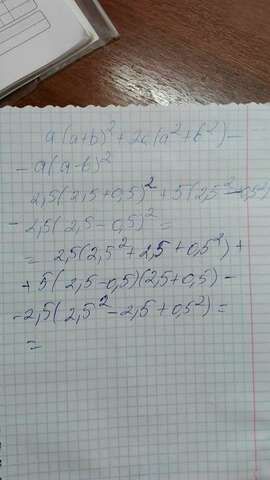 a(a+b)² + 2a(a²+b²) –
– a(a–b)²
2,5(2,5+0,5)² + 5(2,5²–0,5²)
– 2,5(2,5–0,5)² =
= 2,5(2,5²+2,5+0,5²) +
+ 5(2,5–0,5)(2,5+0,5) –
– 2,5(2,5²–2,5+0,5²) =
=